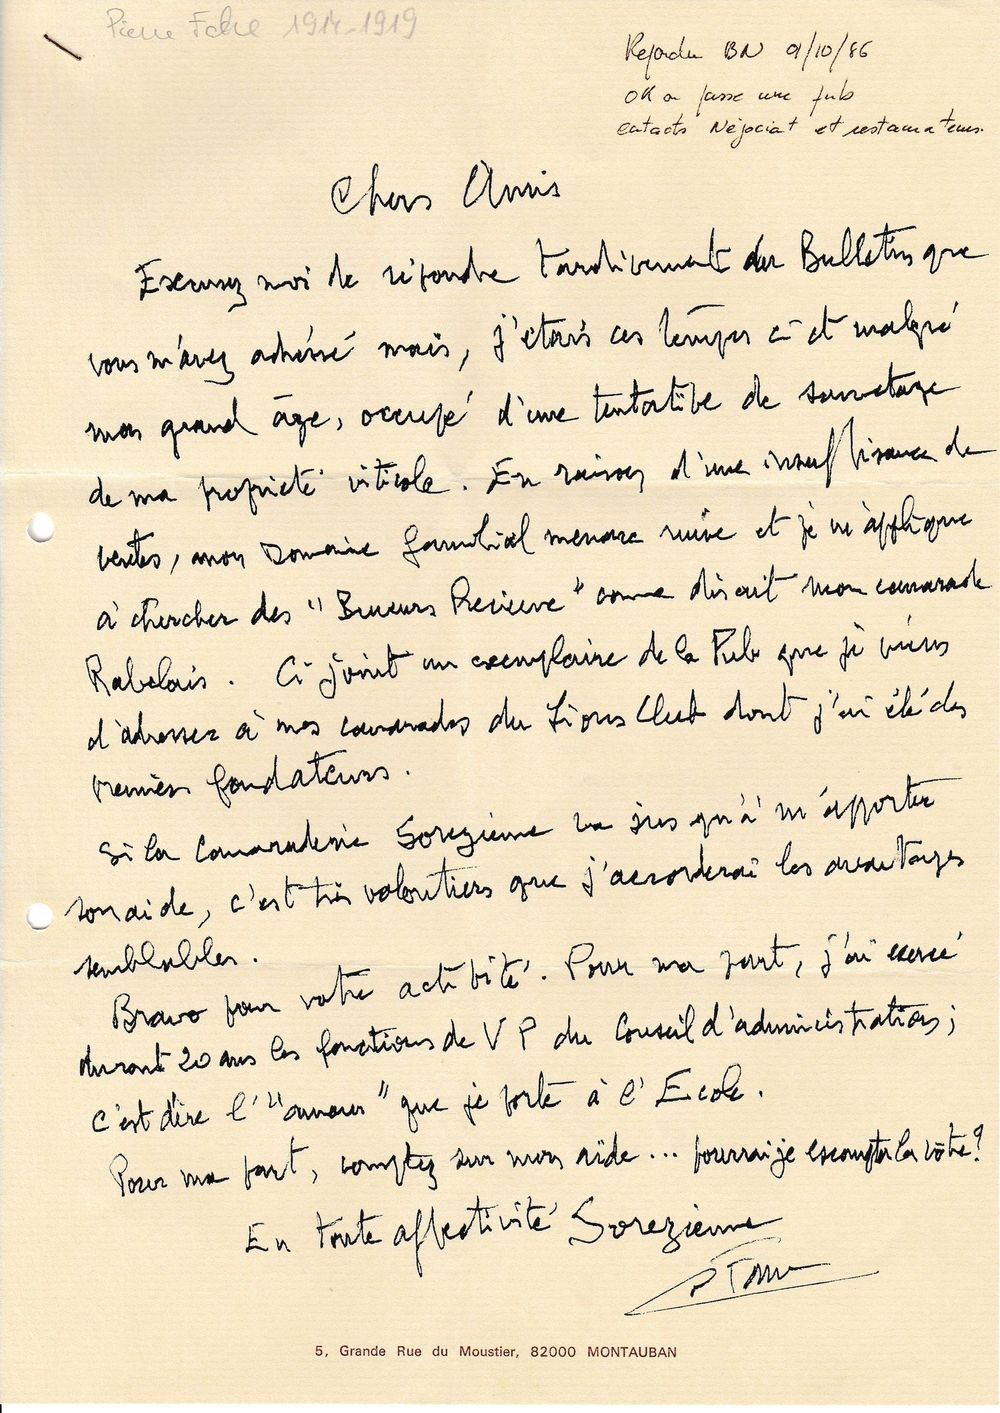 Pierre Fabre 1914-1919
Répondu BN 9/10/86
OK on passe une pub
contacts Négociat et restaurateurs.
Chers Amis
Excusez moi de répondre tardivement des Bulletins que
vous m'avez adréssé mais, j'étais ces temps ci et malgré
mon grand âge, occupé d'une tentative de sauvetage
de ma propriété viticole. En raison d'une insuffisance de
ventes, mon Domaine familial menace ruine et je m'applique
à chercher des "Buveurs Precieux" comme disait mon camarade
Rabelais. Ci joint un exemplaire de la Pub que je viens
d'adresser à mes camarades du Lions Club dont j'ai été des
premiers fondateurs.
Si la Camaraderie Sorezienne va jus qu'à m'apporter
son aide, c'est très volontiers que j'accorderai les avantages
semblables.
Bravo pour votre activité. Pour ma part, j'ai exercé
durant 20 ans les fonctions de V P du Conseil d'administration;
c'est dire l'"amour" que je porte à l'Ecole.
Pour ma part, comptez sur mon aide... pourrai je escompter la vôtre?
En toute affectivité Sorezienne
5, Grande Rue du Moustier, 82000 MONTAUBAN